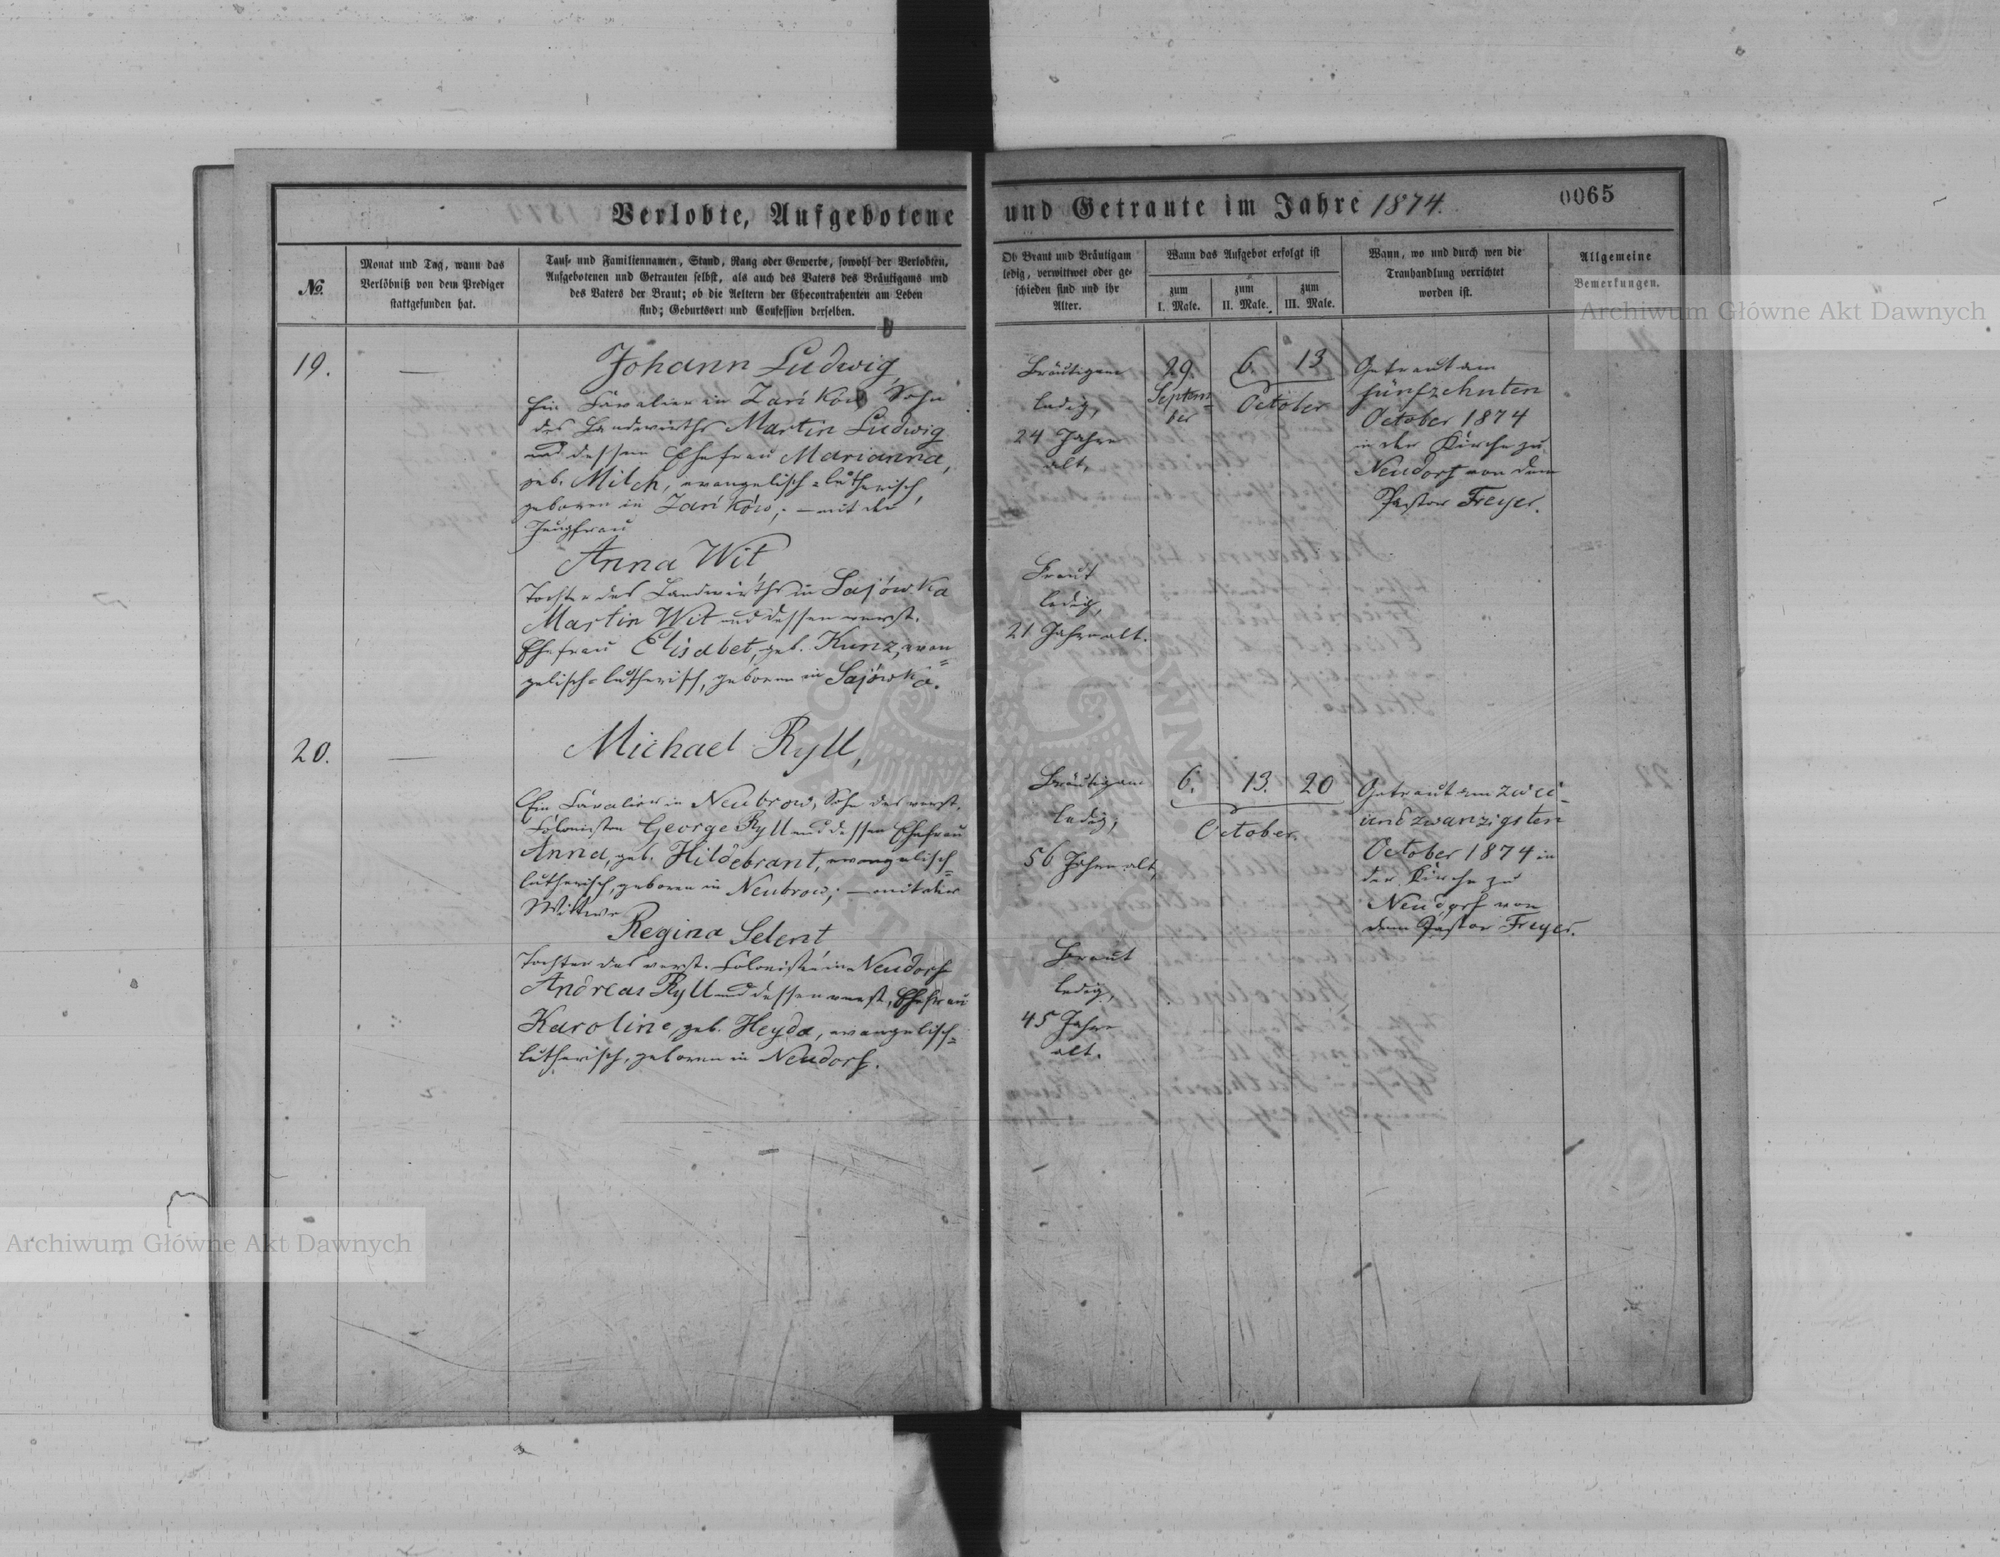 Verlobte, Aufgebotene und Getraute im Jahre 1874.
0065
№.
Monat und Tag, wann das
Verlöbniß von dem Prediger
stattgefunden hat.
Tauf- und Familiennamen, Stand, Rang oder Gewerbe, sowohl der Verlobten,
Aufgebotenen und Getrauten selbst, als auch des Vaters des Bräutigams und
des Vaters der Braut; ob die Aeltern der Ehecontrahenten am Leben
sind; Geburtsort und Confession derselben.
Ob Braut und Bräutigam
ledig, verwittwet oder ge-
schieden sind und ihr
Alter.
Wann das Aufgebot erfolgt ist
zum
I. Male.
zum
II. Male.
zum
III. Male.
Wann, wo und durch wen die
Trauhandlung verrichtet
worden ist.
Allgemeine
Bemerkungen.
Archiwum Główne Akt Dawnych
19.
—
Johann Ludwig,
Ein Cavalier in Zarików Sohn
des Landwirths Martin Ludwig
und dessen Ehefrau Marianna,
geb. Milch, evangelisch-lutherisch,
geboren in Zarików; – mit der
Jungfrau
Anna Wit,
Tochter des Landwirths in Sajówka
Martin Wit und dessen verst.
Ehefrau Elisabet, geb. Kunz, evan=
gelisch-lutherisch, geboren in Sajówka.
Bräutigam
ledig,
24 Jahre
alt,
Braut
ledig,
21 Jahre alt.
29.
Septem=
ber
6. 13
October
Getraut am
fünfzehnten
October 1874
in der Kirche zu
Neudorf von dem
Pastor Freyer.
20.
—
Michael Ryll,
Ein Cavalier in Neubrow, Sohn des verst.
Colonisten George Ryll und dessen Ehefrau
Anna, geb. Hildebrant, evangelisch=
lutherisch, geboren in Neubrow; – mit der
Wittwe
Regina Selent
Tochter des verst. Colonisten in Neudorf
Andreas Ryll und dessen verst. Ehefrau
Karoline, geb. Heyda, evangelisch=
lutherisch, geboren in Neudorf.
Bräutigam
ledig,
56 Jahre alt,
Braut
ledig,
45 Jahre
alt.
6. 13. 20
October.
Getraut am zwei=
undzwanzigsten
October 1874 in
der Kirche zu
Neudorf von
dem Pastor Freyer.
Archiwum Główne Akt Dawnych